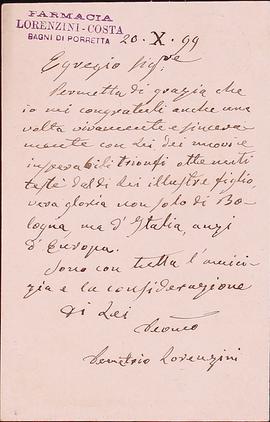 FARMACIA
LORENZINI-COSTA
BAGNI DI PORRETTA
20. X. 99
Egregio Sigre
Permetta di grazia che
io mi congratuli anche una
volta vivamente e sincera
mente con Lei dei nuovi e
insperabili trionfi ottenuti
testè dal di Lei illustre figlio,
vera gloria non solo di Bo-
logna ma d'Italia, anzi
d'Europa.
Sono con tutta l'amici-
zia e la considerazione
di Lei
Devmo
Demetrio Lorenzini